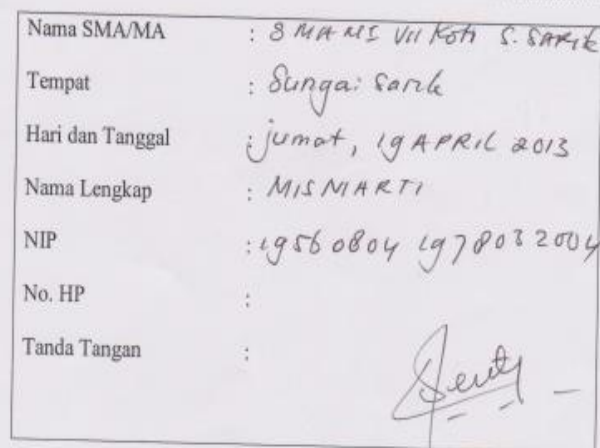 Nama SMA/MA : SMA NI VII Koti S. SARIK
Tempat : Sungai Sarik
Hari dan Tanggal : jumat, 19 APRIL 2013
Nama Lengkap : MISNIARTI
NIP : 19560804 197803 2004
No. HP :
Tanda Tangan :